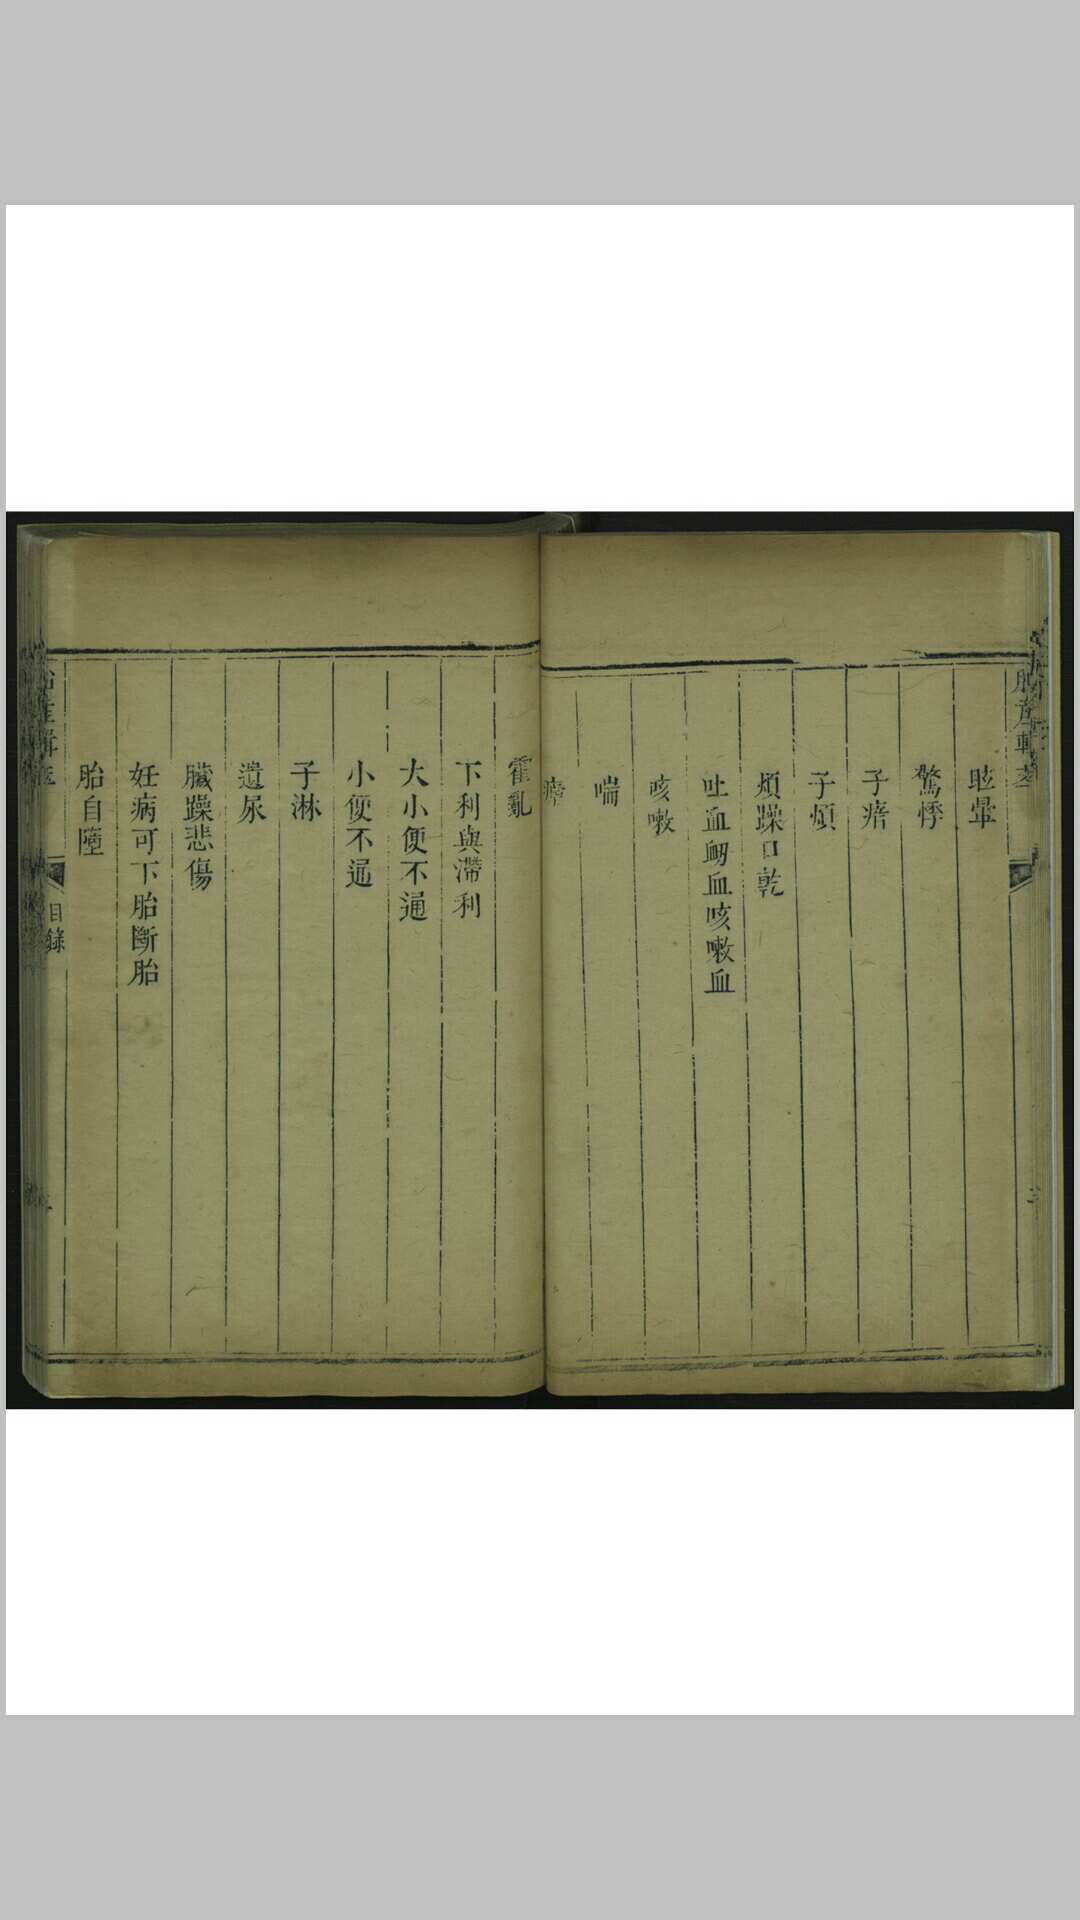 胎產輯萃
眩暈
驚悸
子瘖
子煩
煩躁口乾
吐血衂血咳嗽血
咳嗽
喘
瘧
霍亂
下利與滯利
大小便不通
小便不通
子淋
遺尿
臟躁悲傷
妊病可下胎斷胎
胎自墮
目錄